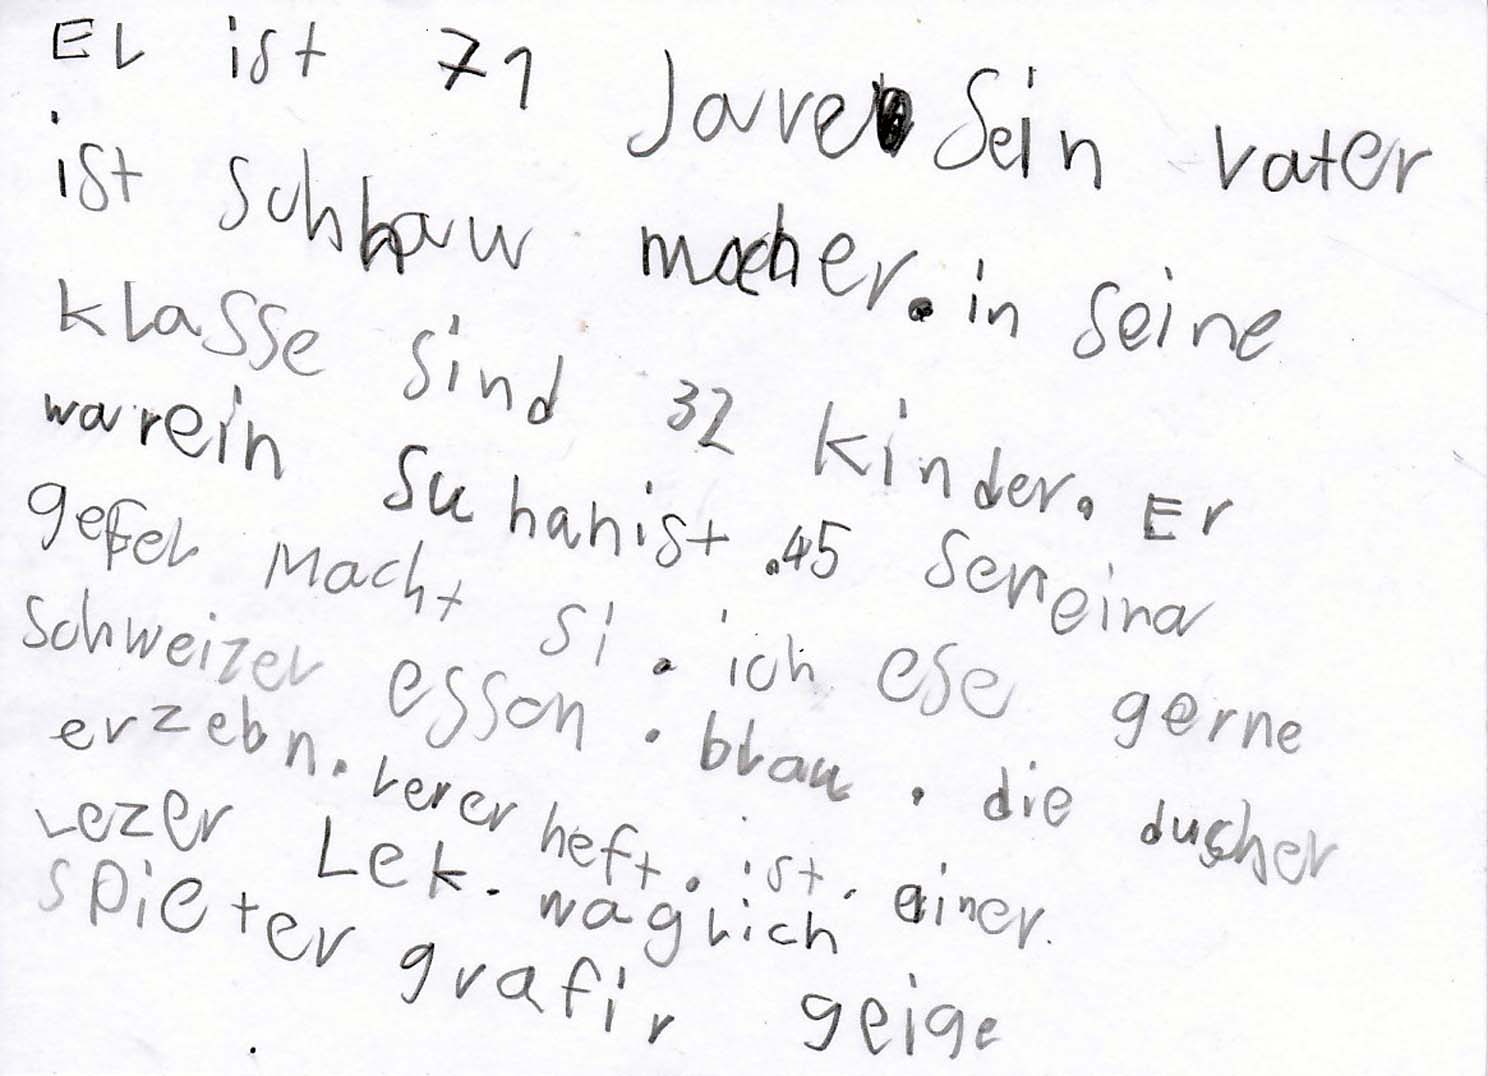 Er ist 71 Jare Sein vater
ist schhauw macher. in seine
klasse sind 32 kinder. Er
war ein Su hanist .45 Sereina
gefel Macht si. ich ese gerne
Schweizer esson. blau. die ducher
erzebn. rerer heft. ist. einer.
Lezer Lek. waglich
spieter grafir geige